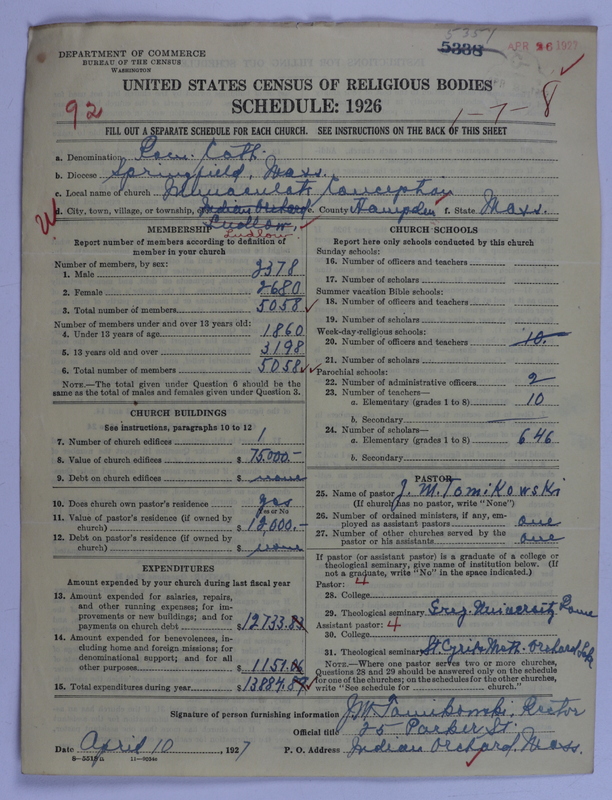 5351
5338
APR 26 1927
DEPARTMENT OF COMMERCE
BUREAU OF THE CENSUS
WASHINGTON
UNITED STATES CENSUS OF RELIGIOUS BODIES
92
SCHEDULE: 1926
1-7-8
FILL OUT A SEPARATE SCHEDULE FOR EACH CHURCH. SEE INSTRUCTIONS ON THE BACK OF THIS SHEET
a. Denomination Rom. Cath.
b. Diocese Springfield, Mass.
c. Local name of church Immaculate Conception
d. City, town, village, or township, Indian Orchard e. County Hampden f. State Mass.
Ludlow,
Ludlow
MEMBERSHIP
Report number of members according to definition of member in your church
Number of members, by sex:
1. Male 2378
2. Female 2680
3. Total number of members 5058
Number of members under and over 13 years old:
4. Under 13 years of age 1860
5. 13 years old and over 3198
6. Total number of members 5058
NOTE.—The total given under Question 6 should be the same as the total of males and females given under Question 3.
CHURCH BUILDINGS
See instructions, paragraphs 10 to 12
7. Number of church edifices 1
8. Value of church edifices $ 75,000.-
9. Debt on church edifices $ none
10. Does church own pastor's residence yes
Yes or No
11. Value of pastor's residence (if owned by church) $ 12,000.-
12. Debt on pastor's residence (if owned by church) $ none
EXPENDITURES
Amount expended by your church during last fiscal year
13. Amount expended for salaries, repairs, and other running expenses; for improvements or new buildings; and for payments on church debt $ 12733.83
14. Amount expended for benevolences, including home and foreign missions; for denominational support; and for all other purposes $ 1151.06
15. Total expenditures during year $ 13884.89
CHURCH SCHOOLS
Report here only schools conducted by this church
Sunday schools:
16. Number of officers and teachers
17. Number of scholars
Summer vacation Bible schools:
18. Number of officers and teachers
19. Number of scholars
Week-day-religious schools:
20. Number of officers and teachers 10
21. Number of scholars
Parochial schools:
22. Number of administrative officers 2
23. Number of teachers—
a. Elementary (grades 1 to 8) 10
b. Secondary
24. Number of scholars—
a. Elementary (grades 1 to 8) 646
b. Secondary
PASTOR
25. Name of pastor J. M. Tomikowski
(If church has no pastor, write "None")
26. Number of ordained ministers, if any, employed as assistant pastors one
27. Number of other churches served by the pastor or his assistants one
If pastor (or assistant pastor) is a graduate of a college or theological seminary, give name of institution below. (If not a graduate, write "No" in the space indicated.)
Pastor: 4
28. College
29. Theological seminary Greg. University Rome
Assistant pastor: 4
30. College
31. Theological seminary St. Cyril & Meth. Orchard Lake
NOTE.—Where one pastor serves two or more churches, Questions 28 and 29 should be answered only on the schedule for one of the churches; on the schedules for the other churches, write "See schedule for church."
Signature of person furnishing information J.M. Tomikowski, Rector
Official title 25 Parker St.
Date April 10, 1927 P. O. Address Indian Orchard, Mass.
8-5518a 11-9034a